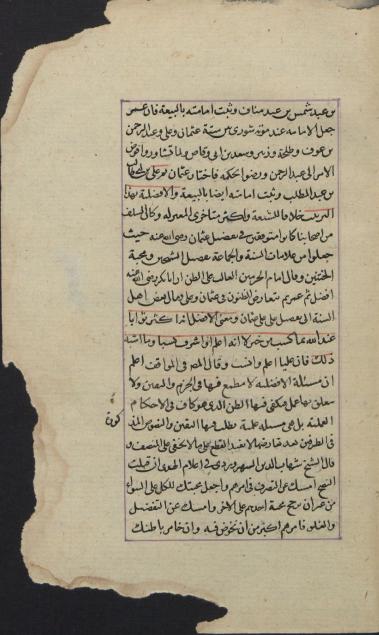 بن عبد شمس بن عبد مناف وثبت امامته بالبيعة فان عمر
جعل الامامه عند موته شورى بين ستة عثمان وعلى وعبد الرحمن
بن عوف وطلحة وزبير وسعد بن ابى وقاص فلما تشاوروا فوض
الامر الى عبد الرحمن ورضوا حكمه فاختار عثمان ثم على بن ابى طالب
بن عبد المطلب وثبت امامته ايضا بالبيعة والافضلية بهذا
الترتيب خلافا للشيعة واكثر متاخرى المعتزله وكان السلف
من اصحابنا كانوا متوقفين فى تفضيل عثمان رضى الله عنه حيث
جعلوا من علامات السنة والجماعة تفضيل الشيخين ومحبة
الختنين وقال امام الحرمين الغالب على الظن ان ابا بكر رضى الله عنه
افضل ثم عمر ثم تتعارض الظنون فى عثمان وعلى ومال بعض اهل
السنة الى تفضيل على على عثمان ومعنى الافضل انه اكثر ثوابا
عند الله بما كسب من خير لا انه اعلم او اشرف نسبا وما اشبه
ذلك فان عليا اعلم وانسب وقال المص فى المواقف اعلم
ان مسئلة الافضليه لا مطمع فيها فى الجزم واليقين ولا
تعلق بها عمل فيكتفى فيها الظن الذى هو كاف فى الاحكام
العملية بل هى مسئله علمية يطلب فيها اليقين والنصوص
كون
فى الطرفين بعد تعارضها لا تفيد القطع على ما لا يخفى على المنصف و
قال الشيخ شهاب الدين السهروردى فى اعلام الهدى ان قبلت
النصح امسك عن التصرف فى امرهم واجعل محبتك للكل على السواء
من غير ان ترجح محبة احدهم على الاخر وامسك عن التفضيل
والغلو فامرهم اكثر من ان تخوض فيه وان خامر باطنك